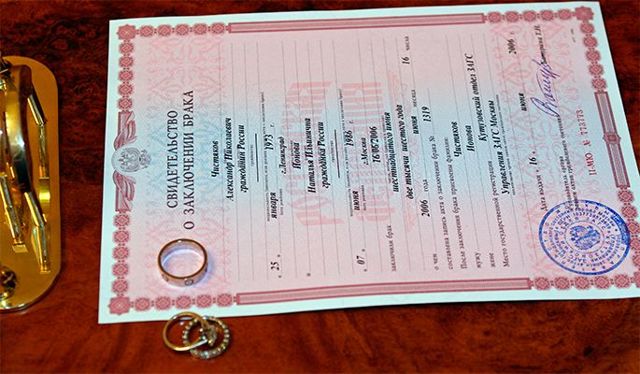 СВИДЕТЕЛЬСТВО
О ЗАКЛЮЧЕНИИ БРАКА
Чистяков
Александр Николаевич
гражданин России
" 25 " января 1973
г.Ленинград
Ионова
Наталья Ильинична
гражданин России
" 07 " июня 1986
г.Москва
заключили брак 16/06/2006
шестнадцатого июня
две тысячи шестого года
о чем 2006 года июня месяца 16 числа
составлена запись акта о заключении брака № 1319
После заключения брака присвоены фамилии:
мужу Чистяков
жене Ионова
Место государственной регистрации Кутузовский отдел ЗАГС
Управления ЗАГС Москвы
Дата выдачи " 16 " июня 2006